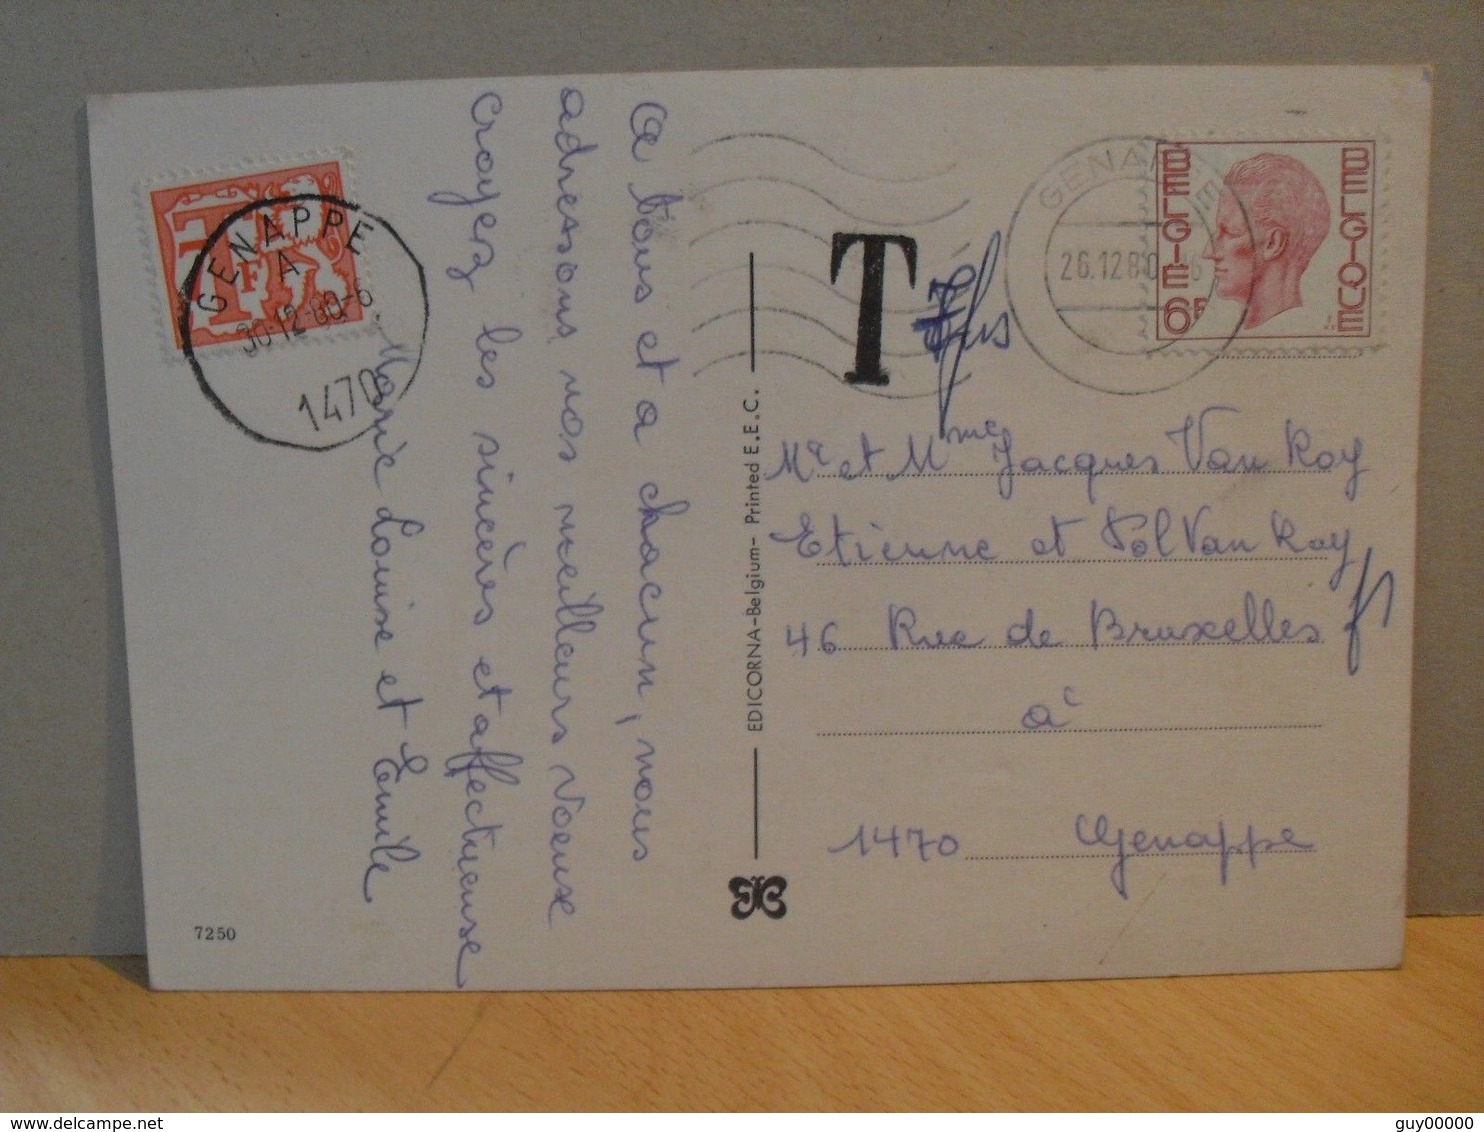 A tous et a chacun, nous
adressons nos meilleurs voeux
Croyez les sincères et affectueuse
Marie Louise et Emile
GENAPPE
A
30-12-80-6
1470
F
7250
EDICORNA-Belgium- Printed E.E.C.
T
GENAPPE
26.12.80
BELGIE
BELGIQUE
6F
Mr et Mme Jacques Van Roy
Etienne et Pol Van Roy
46 Rue de Bruxelles
à
1470 Genappe
guy00000